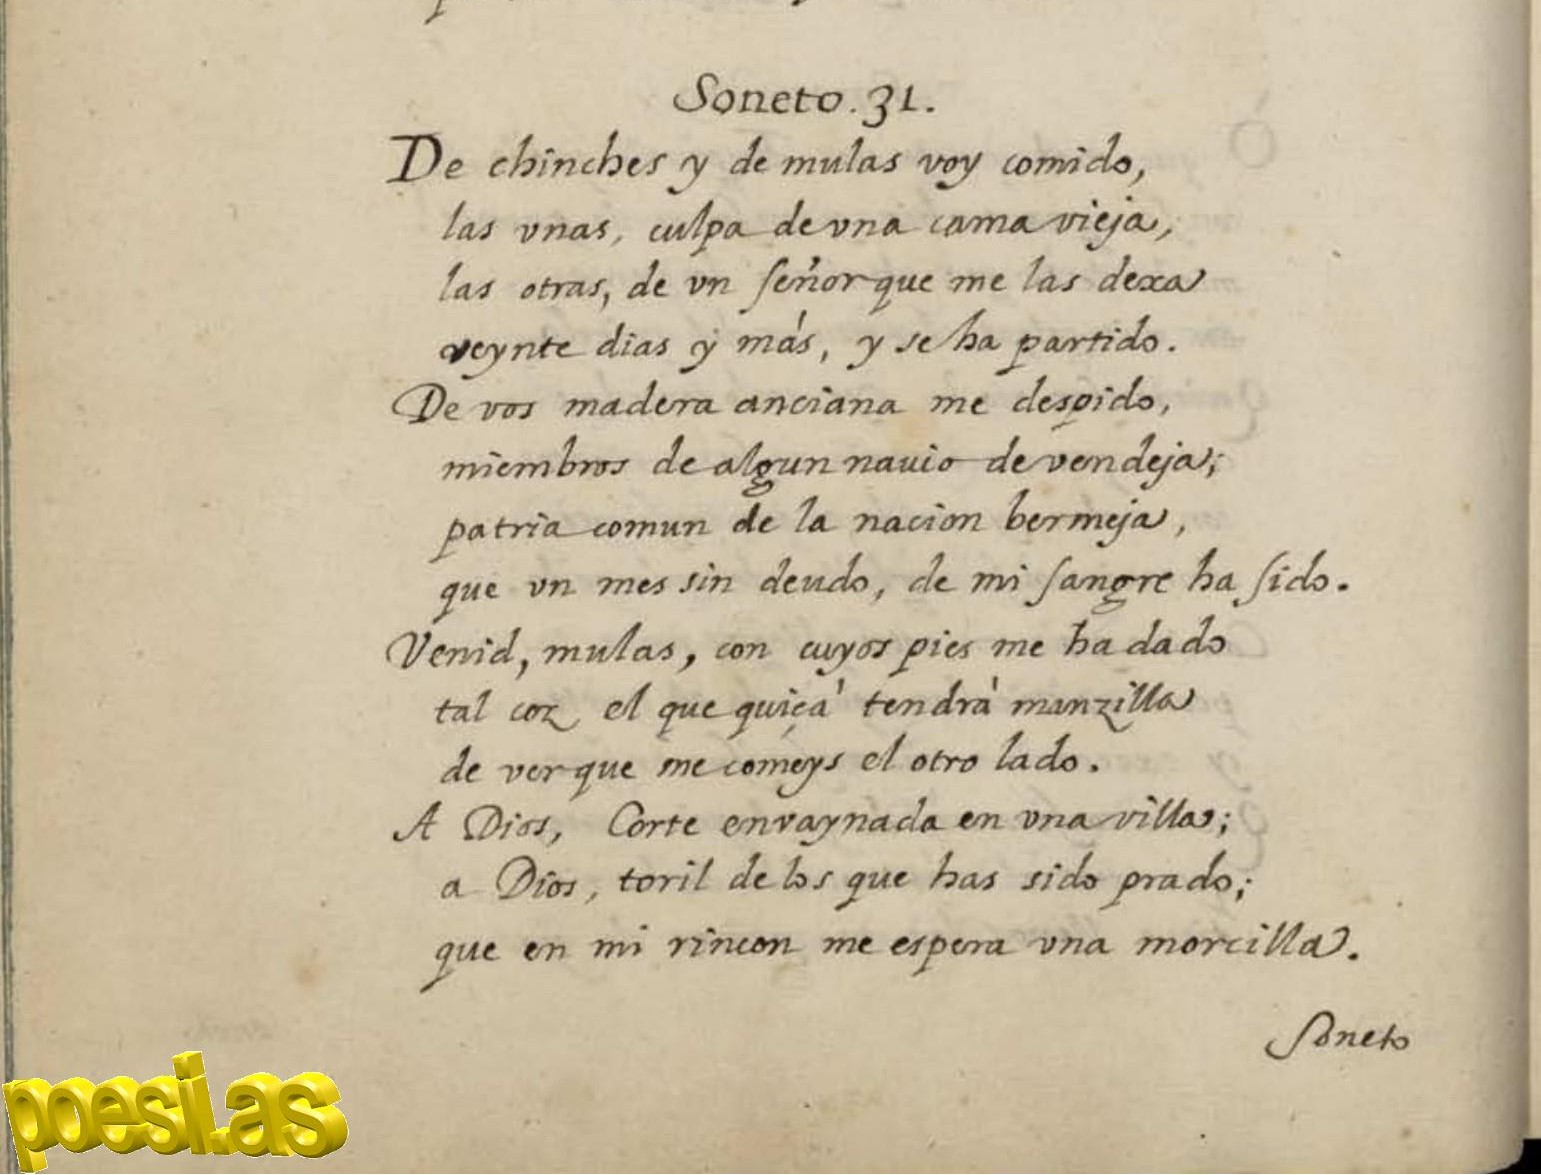 Soneto. 31.
De chinches y de mulas voy comido,
las vnas, culpa de vna cama vieja,
las otras, de vn señor que me las dexa
veynte dias y más, y se ha partido.
De vos madera anciana me despido,
miembros de algun nauio de vendeja;
patria comun de la nacion bermeja,
que vn mes sin deudo, de mi sangre ha sido.
Venid, mulas, con cuyos pies me ha dado
tal coz el que quiçá tendrá manzilla
de ver que me comeys el otro lado.
A Dios, Corte envaynada en vna villa;
a Dios, toril de los que has sido prado;
que en mi rincon me espera vna morcilla.
Soneto
poesi.as